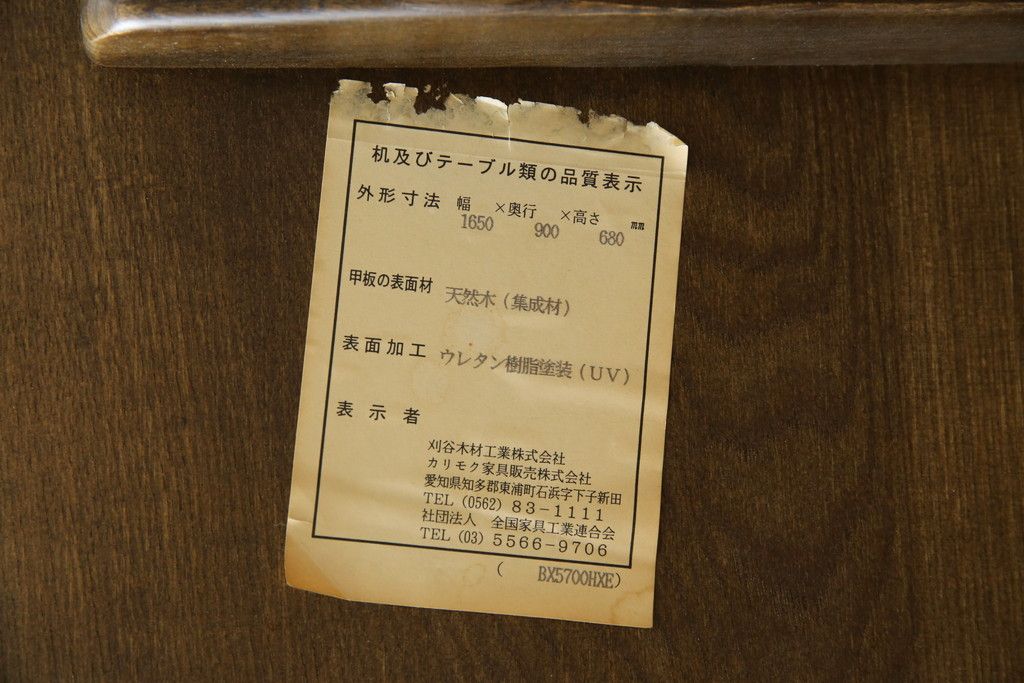 机及びテーブル類の品質表示
外形寸法 幅 ×奥行 ×高さ mm
1650 900 680
甲板の表面材 天然木(集成材)
表面加工 ウレタン樹脂塗装(UV)
表示者
刈谷木材工業株式会社
カリモク家具販売株式会社
愛知県知多郡東浦町石浜字下子新田
TEL(0562)83-1111
社団法人 全国家具工業連合会
TEL(03)5566-9706
( BX5700HXE)